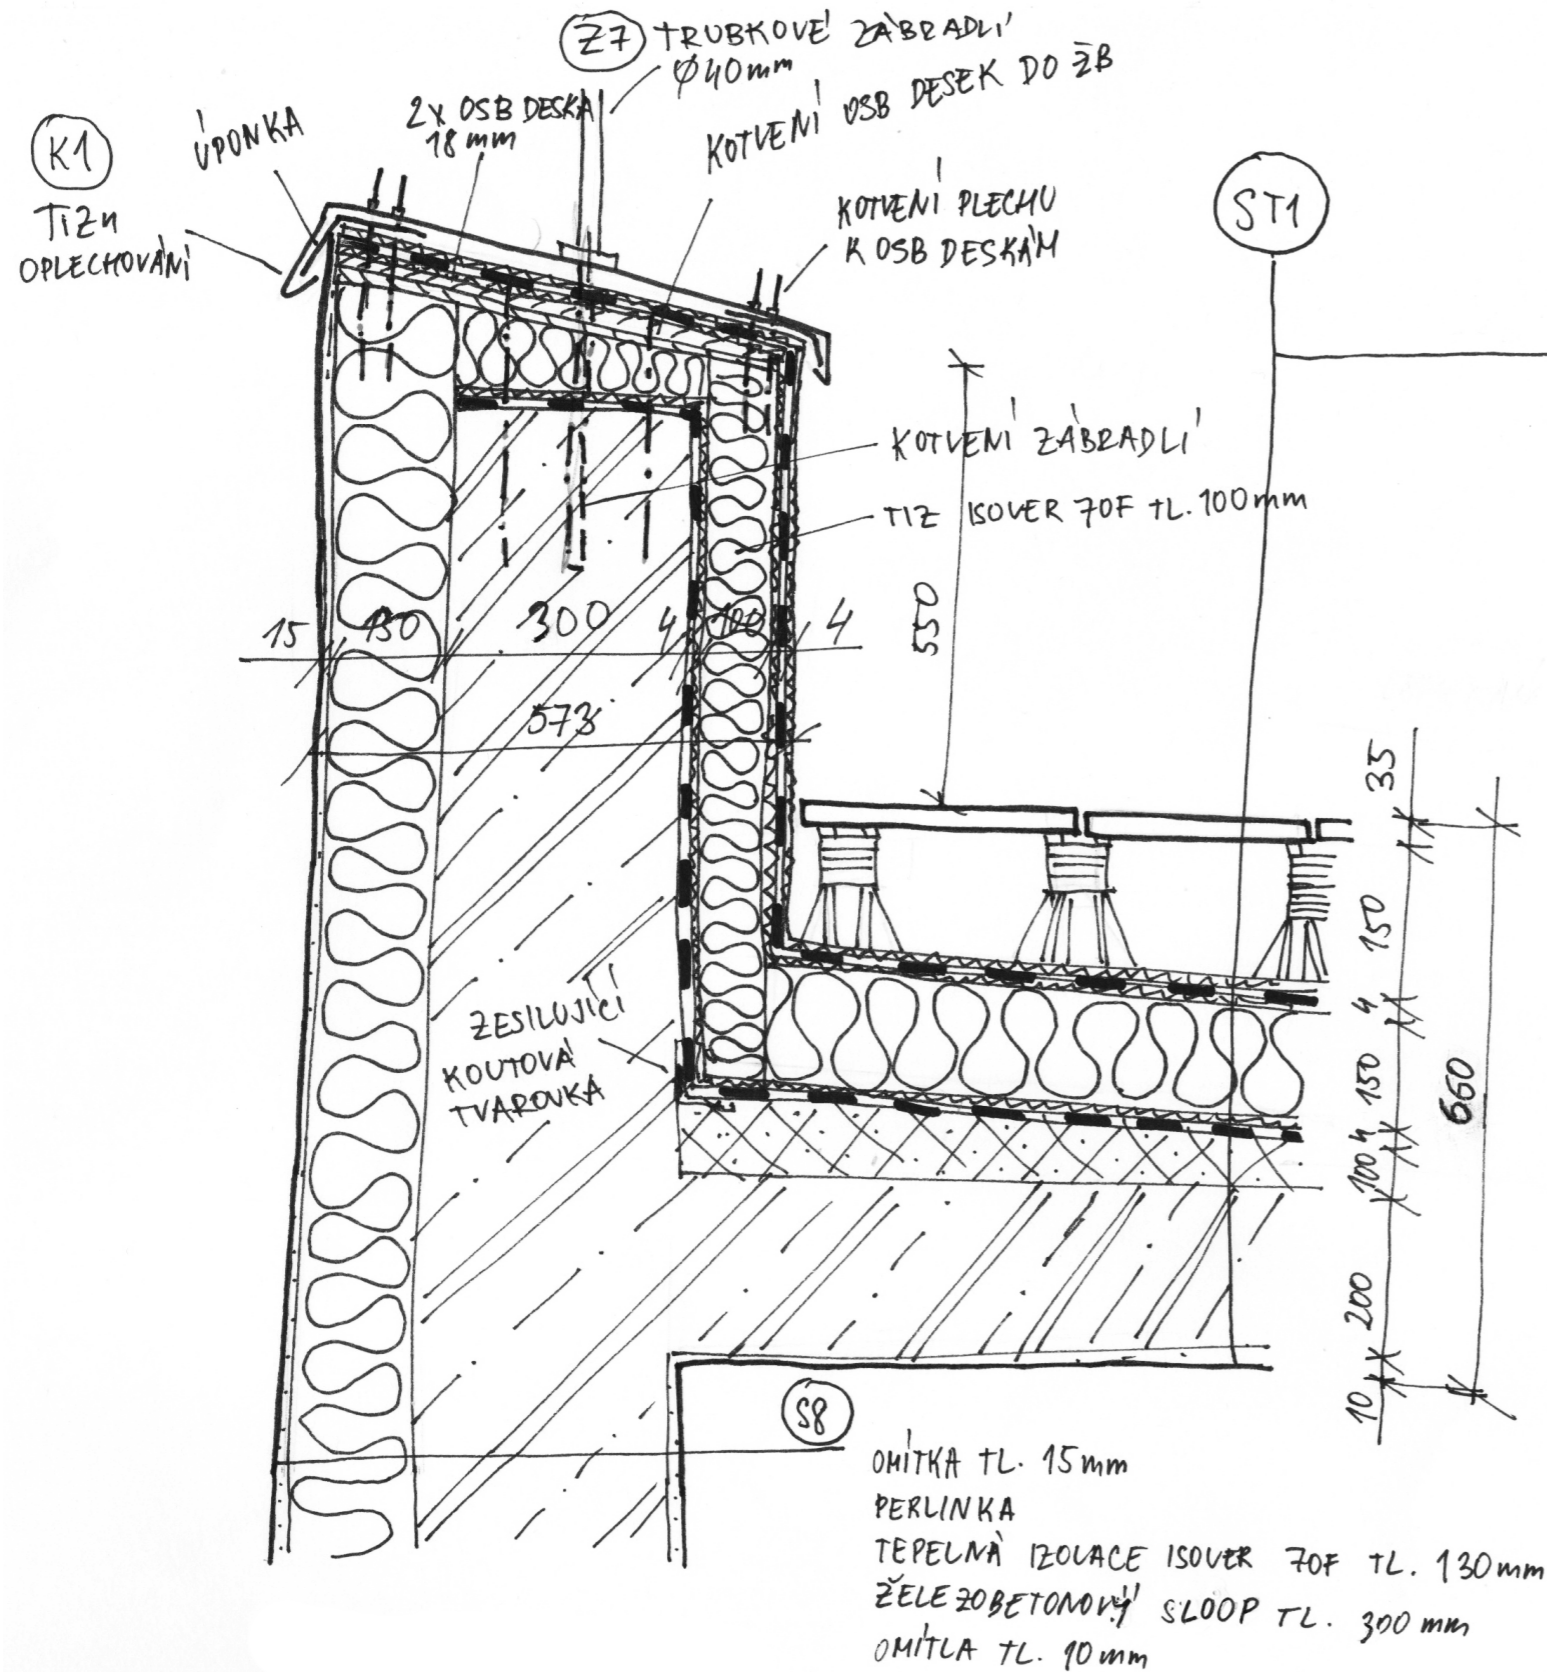 Z7 TRUBKOVÉ ZÁBRADLÍ
Ø40mm
K1
TiZn
OPLECHOVÁNÍ
ÚPONKA
2X OSB DESKA
18mm
KOTVENÍ OSB DESEK DO ŽB
KOTVENÍ PLECHU
K OSB DESKÁM
ST1
KOTVENÍ ZÁBRADLÍ
TIZ ISOVER 70F TL. 100mm
550
15 130 300 4 100 4
573
ZESILUJÍCÍ
KOUTOVÁ
TVAROVKA
35
150
4
150
4
100
200
10
660
S8
OMÍTKA TL. 15mm
PERLINKA
TEPELNÁ IZOLACE ISOVER 70F TL. 130mm
ŽELEZOBETONOVÝ SLOOP TL. 300mm
OMÍTLA TL. 10mm